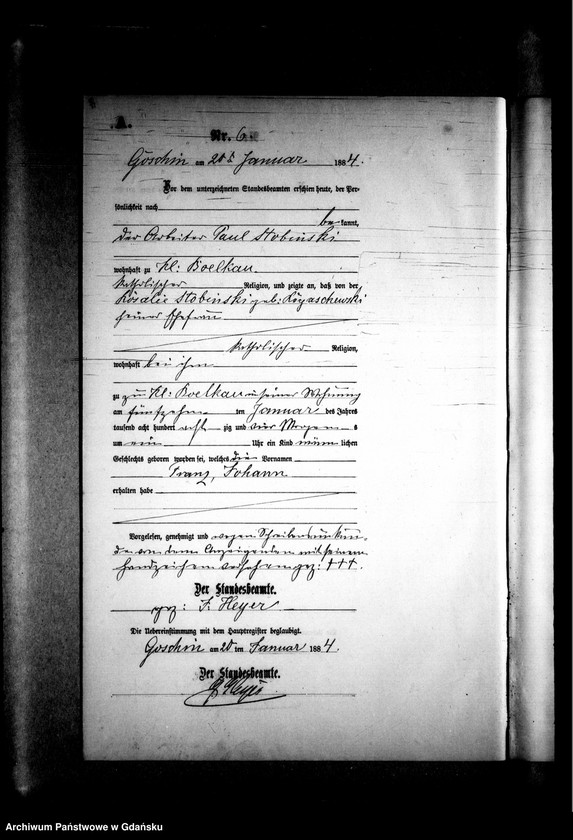 A.
Nr. 6.
Goschin am 20ten Januar 1884.
Vor dem unterzeichneten Standesbeamten erschien heute, der Per-
sönlichkeit nach
be kannt,
der Arbeiter Paul Stobinski
wohnhaft zu Kl: Boelkau
katholischer Religion, und zeigte an, daß von der
Rosalie Stobinski geb:
seiner Ehefrau
katholischer Religion,
wohnhaft bei ihm
zu Kl: Boelkau in seiner Wohnung
am fünfzehn ten Januar des Jahres
tausend acht hundert acht zig und vier Morgens
um ein Uhr ein Kind männlichen
Geschlechts geboren worden sei, welches die Vornamen
Franz, Johann
erhalten habe
Vorgelesen, genehmigt und wegen Schreibensunkun-
de von dem Anzeigenden mit seinem
Handzeichen versehen gez: +++.
Der Standesbeamte.
gez: F. Heyer
Die Uebereinstimmung mit dem Hauptregister beglaubigt.
Goschin am 20 ten Januar 1884.
Der Standesbeamte.
Heyer
Archiwum Państwowe w Gdańsku